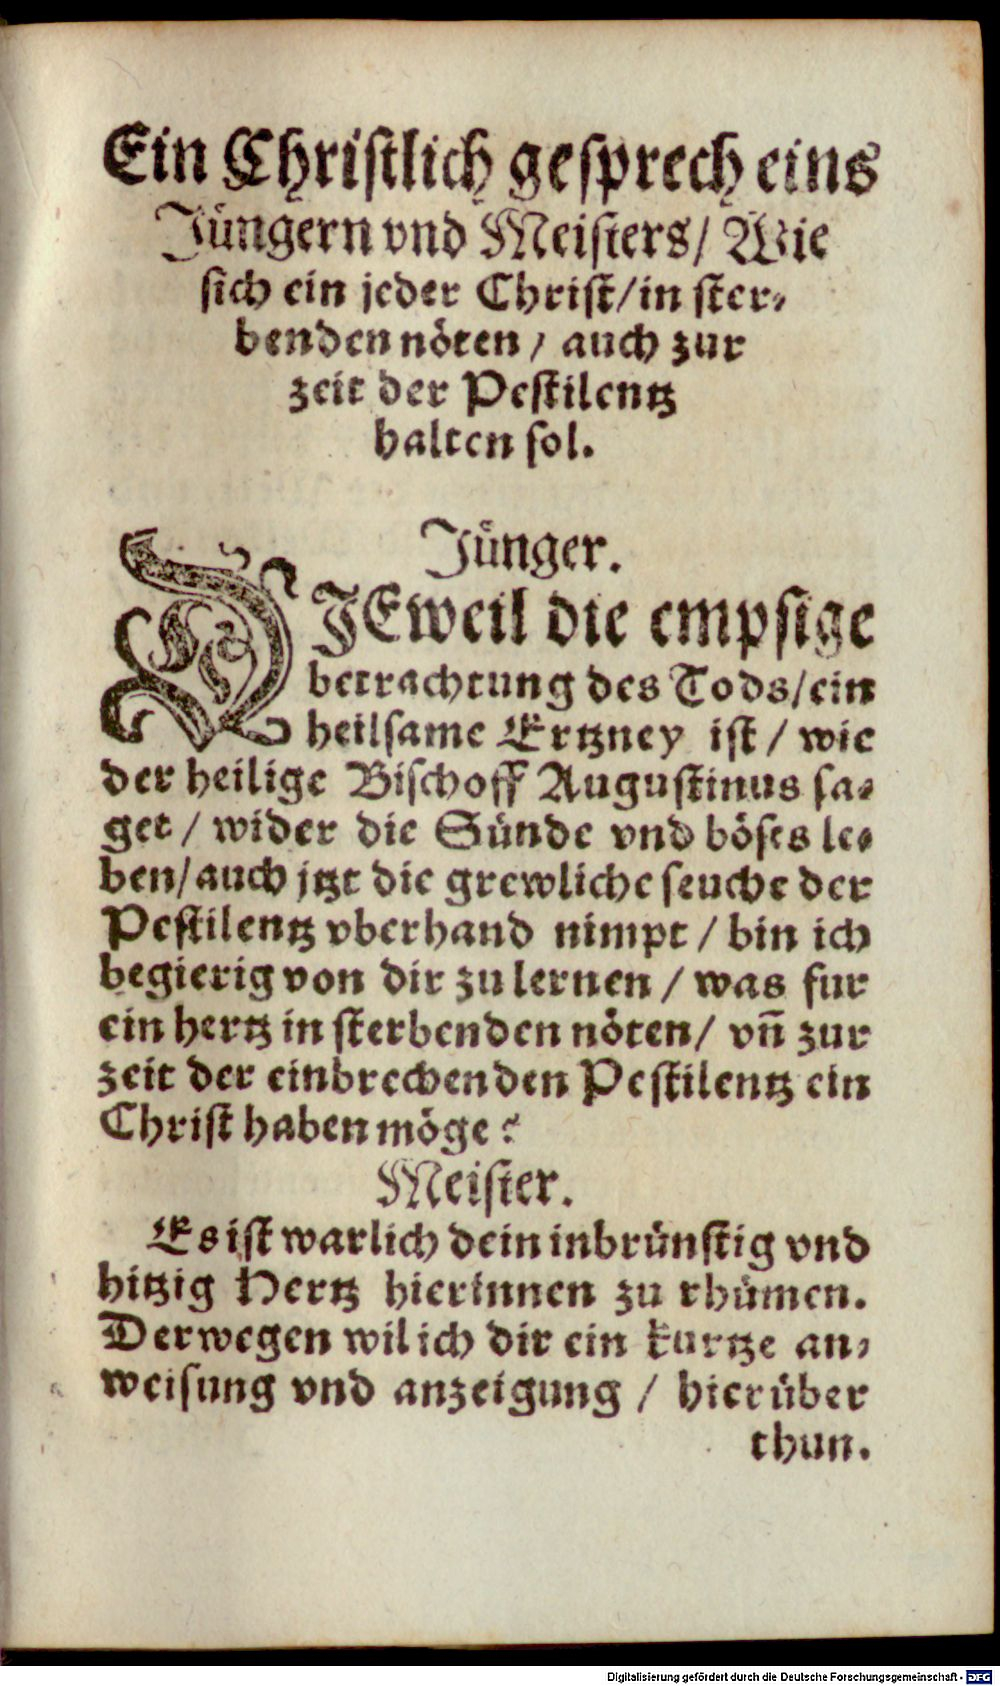 Ein Christlich gesprech eins
Jüngern vnd Meisters/ Wie
sich ein jeder Christ/in ster-
benden nöten / auch zur
zeit der Pestilentz
halten sol.
Jünger.
DJEweil die empsige
betrachtung des Tods/ein
heilsame Ertzney ist / wie
der heilige Bischoff Augustinus sa-
get / wider die Sünde vnd böses le-
ben/auch jtzt die grewliche seuche der
Pestilentz vberhand nimpt / bin ich
begierig von dir zu lernen / was fur
ein hertz in sterbenden nöten/ vñ zur
zeit der einbrechenden Pestilentz ein
Christ haben möge?
Meister.
Es ist warlich dein inbrünstig vnd
hitzig Hertz hierinnen zu rhümen.
Derwegen wil ich dir ein kurtze an-
weisung vnd anzeigung / hierüber
thun.
Digitalisierung gefördert durch die Deutsche Forschungsgemeinschaft - DFG